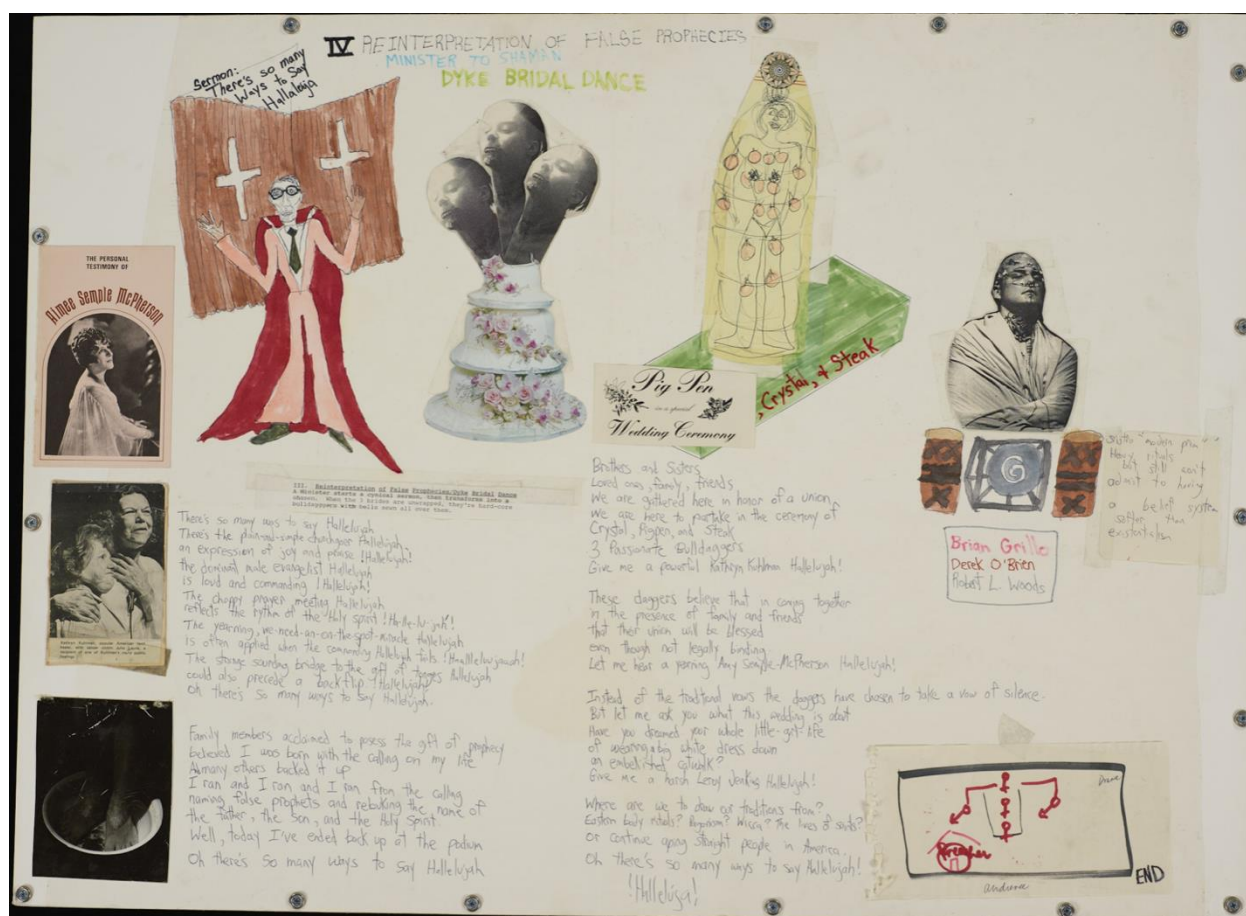 IV REINTERPRETATION OF FALSE PROPHECIES
MINISTER TO SHAMAN
DYKE BRIDAL DANCE
Sermon:
There's so many
Ways to Say
Hallaluja
THE PERSONAL
TESTIMONY OF
Aimee Semple McPherson
, Crystal, & Steak
Pig Pen
in a special
Wedding Ceremony
III. Reinterpretation of False Prophecies/Dyke Bridal Dance
A Minister starts a cynical sermon, then transforms into a
shaman. When the 3 brides are unwrapped, they're hard-core
bulldaggers with bells sewn all over them.
There's so many ways to say Hallelujah
There's the plain-and-simple churchgoer Hallelujah
an expression of joy and praise !Hallelujah!
the dominant male evangelist Hallelujah
is loud and commanding !Hallelujah!
The choppy prayer meeting Hallelujah
reflects the rythm of the Holy spirit !Ha-lle-lu-jah!
The yearning, we-need-an-on-the-spot-miracle Hallelujah
is often applied when the commanding Hallelujah fails
The strange sounding bridge to the gift of tongues Hallelujah
could also precede a backflip !Hallelujah!
Oh there's so many ways to say Hallelujah.
Family members acclaimed to posess the gift of prophecy
believed I was born with the calling on my life
many others backed it up
I ran and I ran and I ran from the calling
naming false prophets and rebuking the name of
the father, the son, and the Holy Spirit.
Well, today I've ended back up at the podium
Oh there's so many ways to say Hallelujah
Brothers and Sisters
Loved ones, family, friends
We are gathered here in honor of a union
We are here to partake in the ceremony of
Crystal, Pigpen, and Steak
3 Passionate Bulldaggers
Give me a powerful Kathryn Kuhlman Hallelujah!
These daggers believe that in coming together
in the presence of family and friends
that their union will be blessed
even though not legally binding
Let me hear a yearning Amy Semple-McPherson Hallelujah!
Instead of the traditional vows the daggers have chosen to take a vow of silence.
But let me ask you what this wedding is about
Have you dreamed your whole little-girl-life
of wearing a big white dress down
an embellished catwalk?
Give me a harsh Leroy Jenkins Hallelujah!
Where are we to draw our traditions from?
Eastern body rituals? Paganism? Wicca? The lives of saints?
Or continue aping straight people in America.
Oh there's so many ways to say Hallelujah!
!Halleluja!
G
Brian Grillo
Derek O'Brien
Robert L. Woods
"modern
rituals
but still can't
admit to having
a belief system
than
existentialism
Drane
Preacher
audience
END